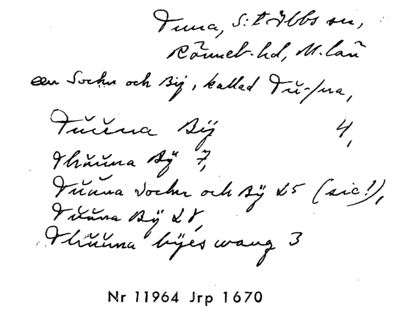 Tuna, S:t Ibbs sn,
Rönneb. hd, M. län
en Sochn och Bÿ, kallad Tŭ-/na,
Tŭŭna Bÿ 4,
Thŭŭna Bÿ 7,
Tŭŭna sochn och Bÿ 25 (sic!),
Tŭŭna Bÿ 28,
Thŭŭna bÿes wang 3
Nr 11964 Jrp 1670